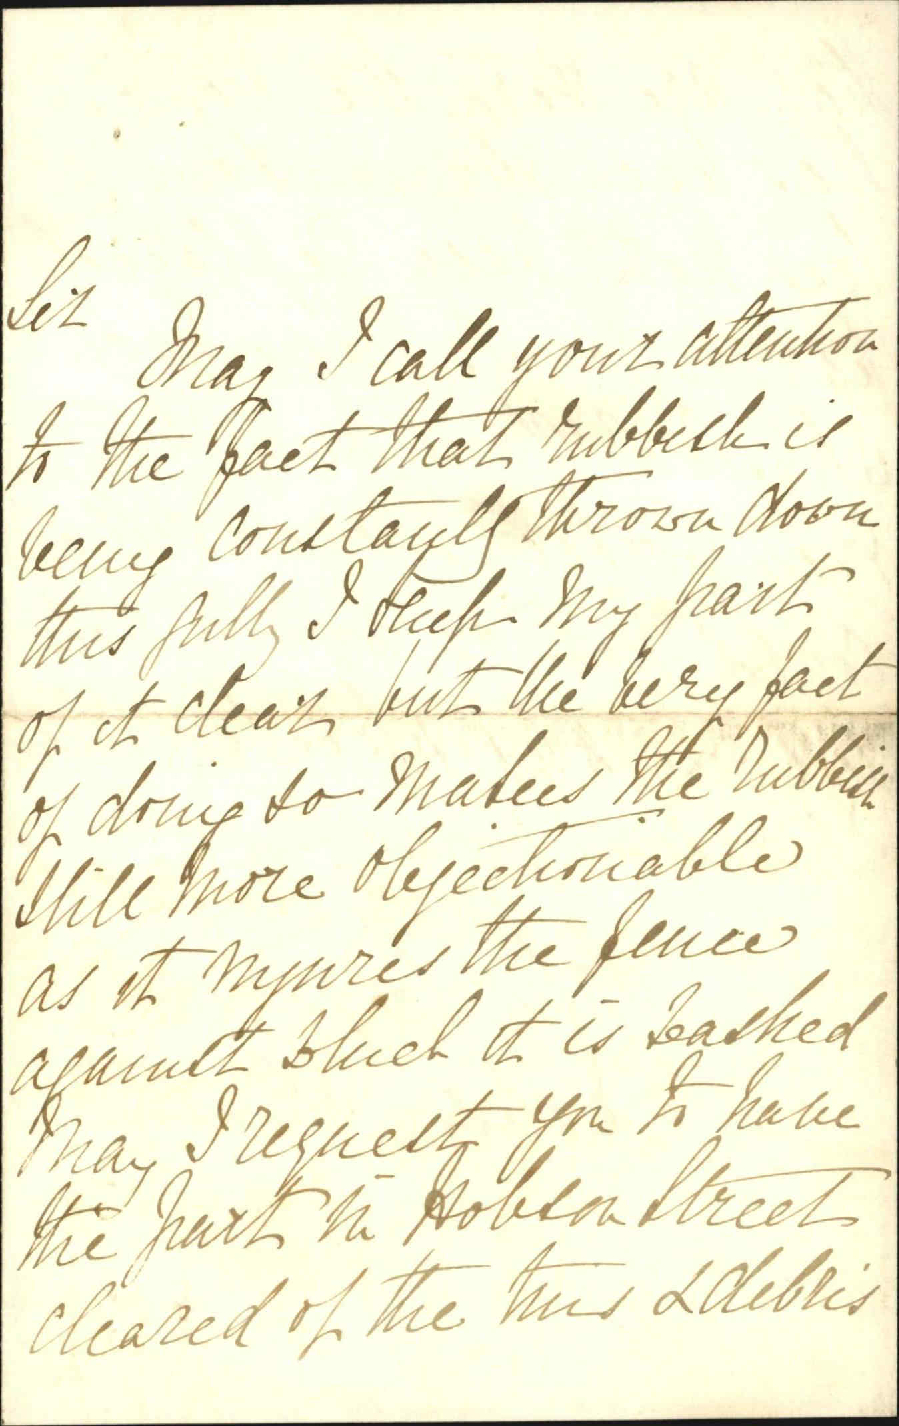 Sir
May I call your attention
to the fact that rubbish is
being constantly thrown down
this gully I keep my part
of it clear but the very fact
of doing so makes the rubbish
still more objectionable
as it injures the fence
against which it is washed
May I request you to have
the part in Hobson Street
cleared of the tins & debris